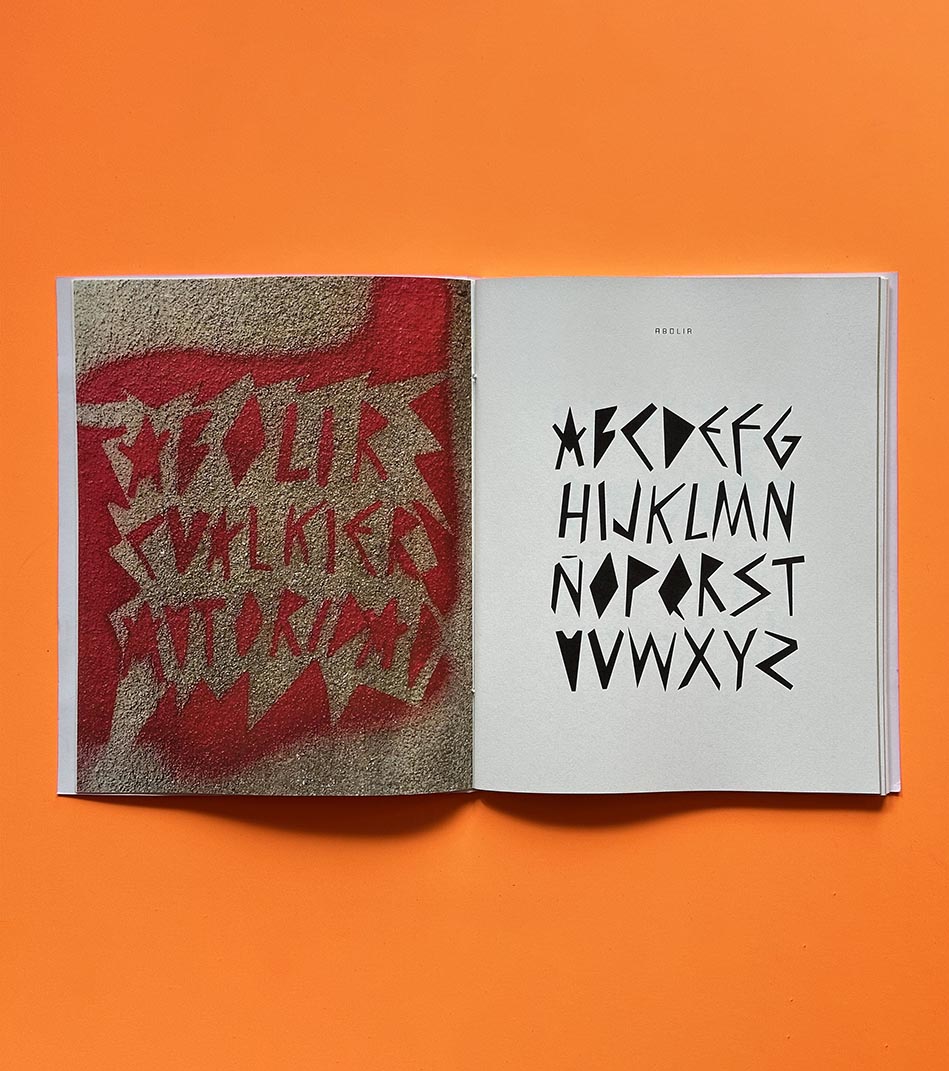 ABOLIR
CUALKIER
AUTORIDAD
ABOLIR
ABCDEFG
HIJKLMN
ÑOPQRST
UVWXYZ